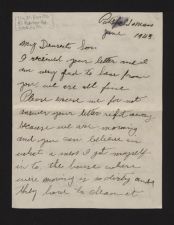 June 1943
My Dearest Son
I received your letter and I
am very glad to hear from
you we are all fine
Please excuse me for not
answer your letter right away
because we are moving
and you can believe in
what a mess I got myself
in to. the house where
were moving is so dirty and
they have to clean it